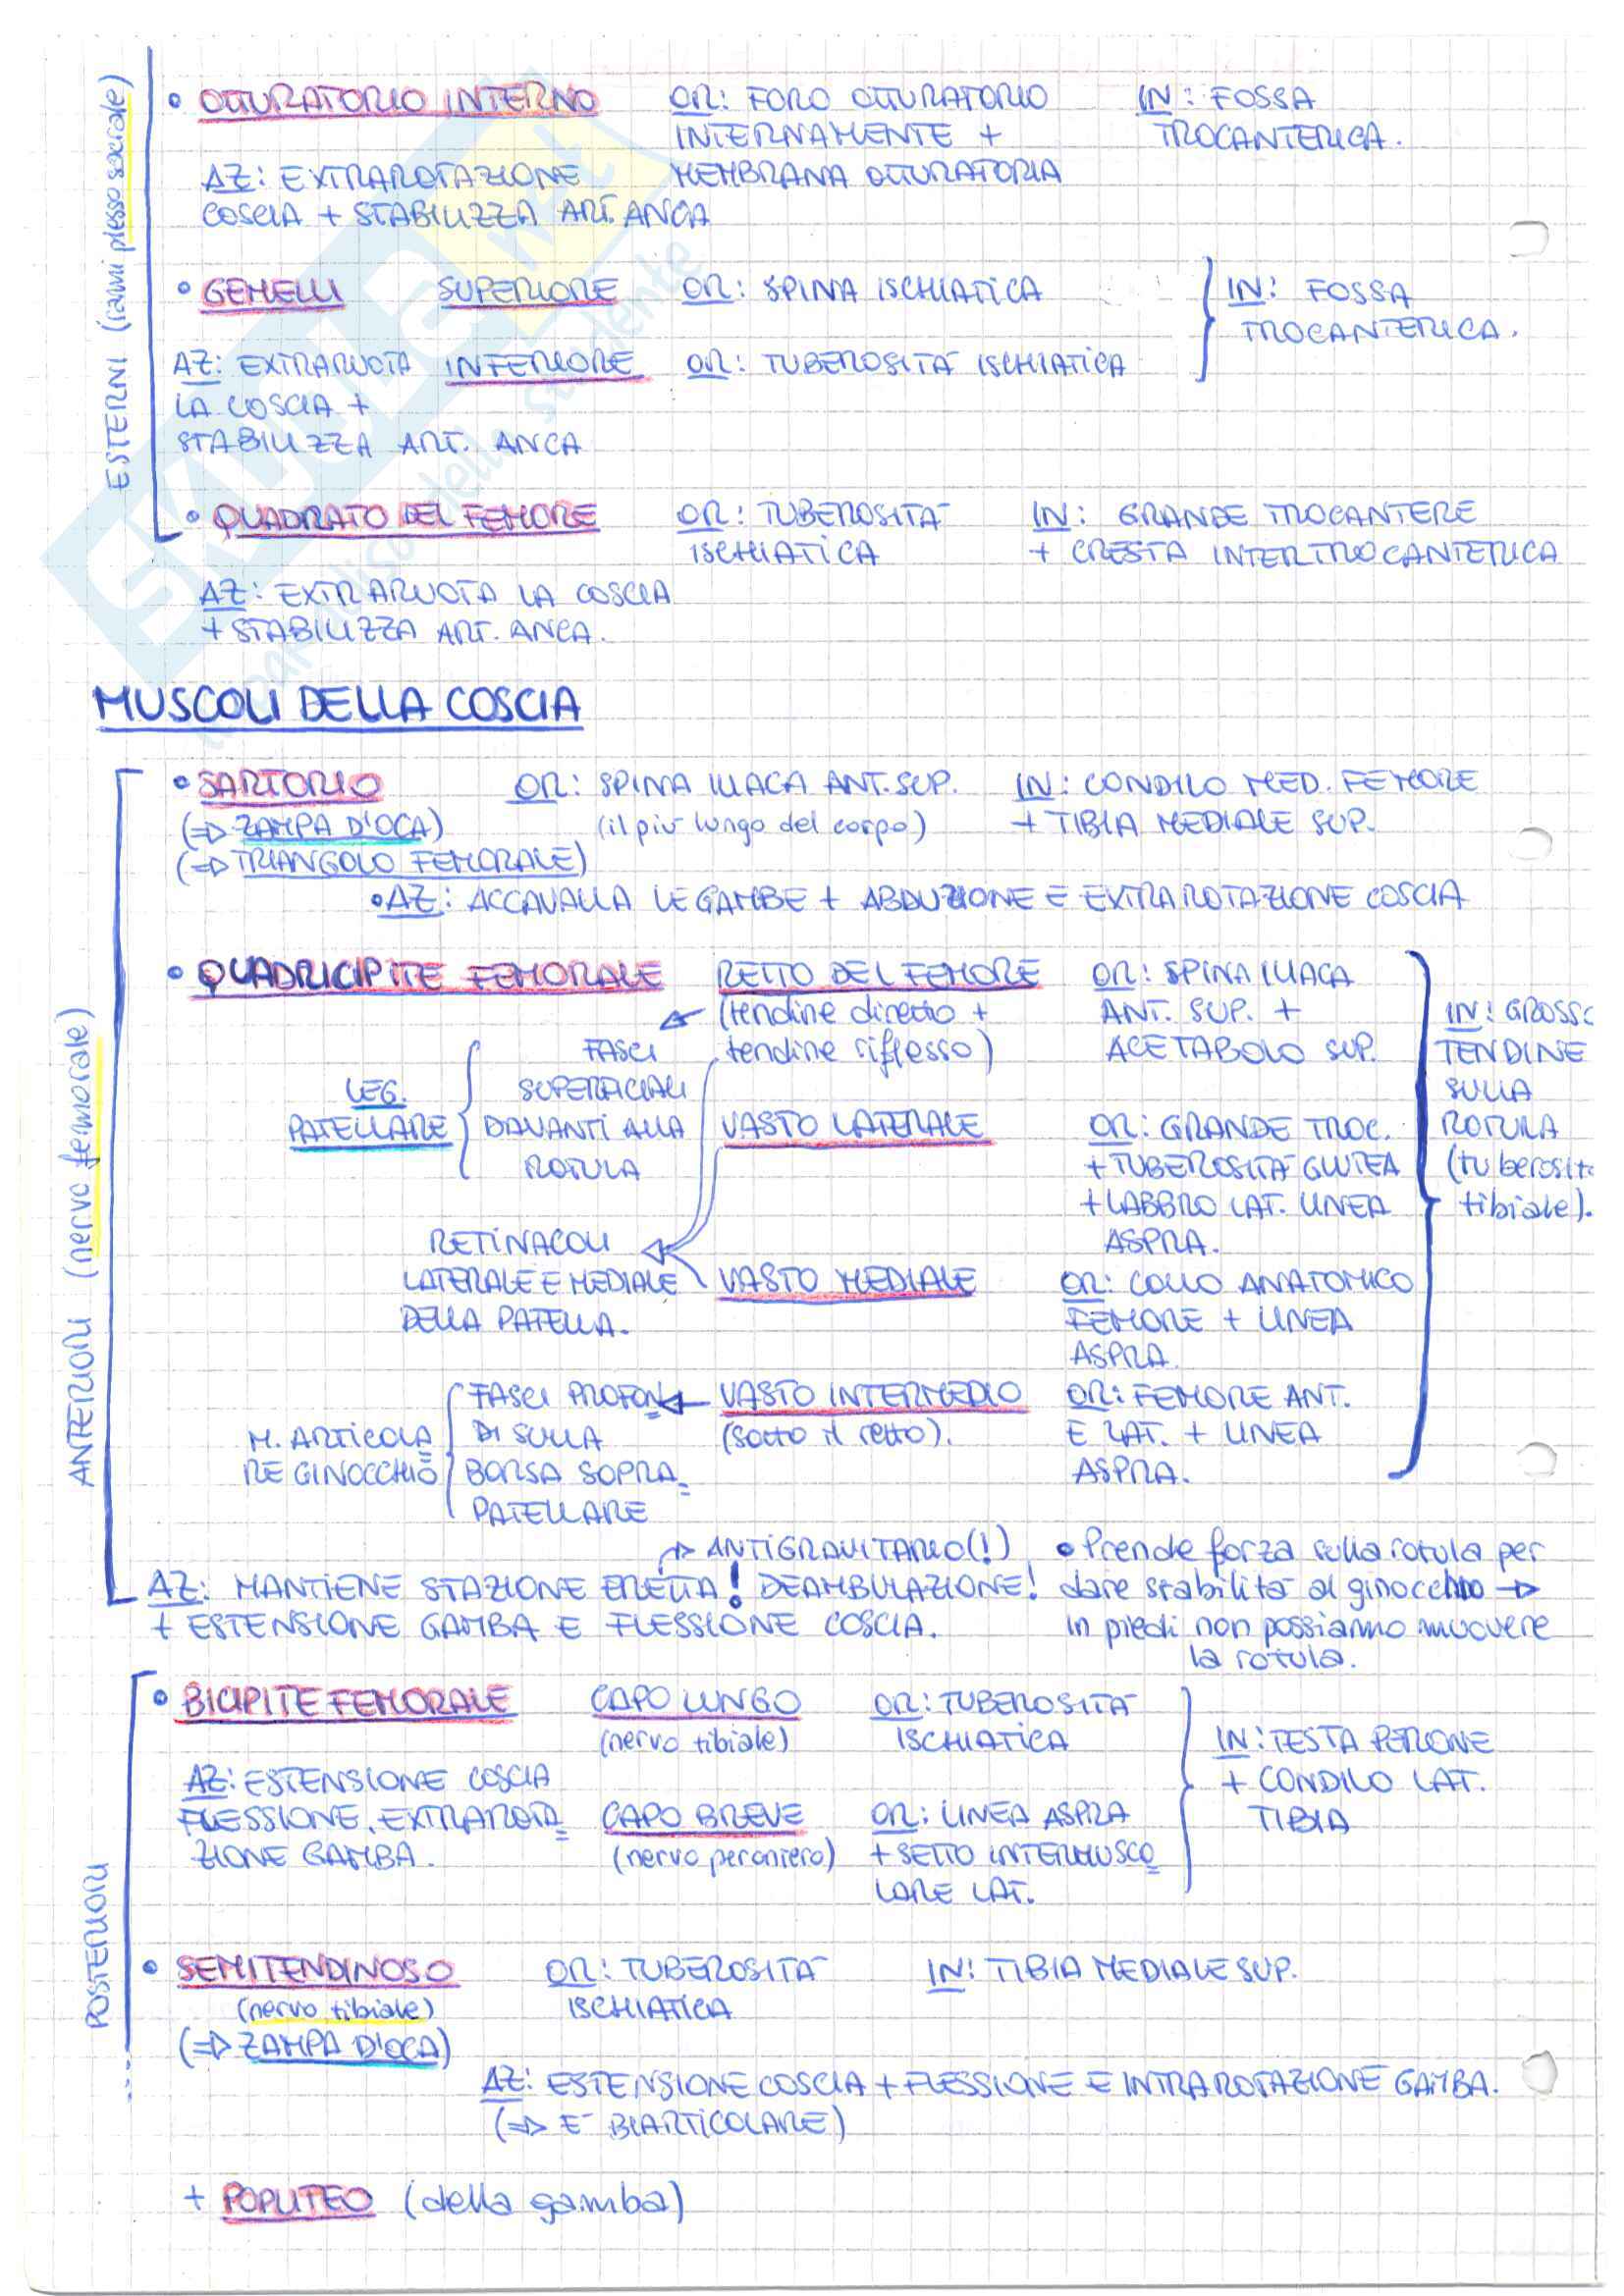 ESTERNI (rami plesso sacrale)
• OTTURATORIO INTERNO OR: FORO OTTURATORIO IN: FOSSA
INTERNAMENTE + TROCANTERICA.
AZ: EXTRAROTAZIONE MEMBRANA OTTURATORIA
COSCIA + STABILIZZA ART. ANCA
• GEMELLI SUPERIORE OR: SPINA ISCHIATICA IN: FOSSA
TROCANTERICA.
AZ: EXTRARUOTA INFERIORE OR: TUBEROSITÀ ISCHIATICA
LA COSCIA +
STABILIZZA ART. ANCA
• QUADRATO DEL FEMORE OR: TUBEROSITÀ IN: GRANDE TROCANTERE
ISCHIATICA + CRESTA INTERTROCANTERICA
AZ: EXTRARUOTA LA COSCIA
+ STABILIZZA ART. ANCA.
MUSCOLI DELLA COSCIA
ANTERIORI (nervo femorale)
• SARTORIO OR: SPINA ILIACA ANT. SUP. IN: CONDILO MED. FEMORE
(=> ZAMPA D'OCA) (il più lungo del corpo) + TIBIA MEDIALE SUP.
(=> TRIANGOLO FEMORALE)
• AZ: ACCAVALLA LE GAMBE + ABDUZIONE E EXTRAROTAZIONE COSCIA
• QUADRICIPITE FEMORALE RETTO DEL FEMORE OR: SPINA ILIACA
(tendine diretto + ANT. SUP. + IN: GROSSO
FASCI tendine riflesso) ACETABOLO SUP. TENDINE
LEG. SUPERFICIALI SULLA
PATELLARE DAVANTI ALLA VASTO LATERALE OR: GRANDE TROC. ROTULA
ROTULA + TUBEROSITÀ GLUTEA (tuberosità
+ LABBRO LAT. LINEA tibiale).
RETINACOLI ASPRA.
LATERALE E MEDIALE VASTO MEDIALE OR: COLLO ANATOMICO
DELLA PATELLA. FEMORE + LINEA
ASPRA.
FASCI PROFON VASTO INTERMEDIO OR: FEMORE ANT.
M. ARTICOLA DI SULLA (sotto il retto). E LAT. + LINEA
RE GINOCCHIO BORSA SOPRA ASPRA.
PATELLARE
-> ANTIGRAVITARIO(!) • Prende forza sulla rotula per
AZ: MANTIENE STAZIONE ERETTA! DEAMBULAZIONE! dare stabilità al ginocchio ->
+ ESTENSIONE GAMBA E FLESSIONE COSCIA. in piedi non possiamo muovere
la rotula.
POSTERIORI
• BICIPITE FEMORALE CAPO LUNGO OR: TUBEROSITÀ
(nervo tibiale) ISCHIATICA IN: TESTA PERONE
AZ: ESTENSIONE COSCIA + CONDILO LAT.
FLESSIONE, EXTRAROTA CAPO BREVE OR: LINEA ASPRA TIBIA
ZIONE GAMBA. (nervo peroniero) + SETTO INTERMUSCO
LARE LAT.
• SEMITENDINOSO OR: TUBEROSITÀ IN: TIBIA MEDIALE SUP.
(nervo tibiale) ISCHIATICA
(=> ZAMPA D'OCA)
AZ: ESTENSIONE COSCIA + FLESSIONE E INTRAROTAZIONE GAMBA.
(=> È BIARTICOLARE)
+ POPLITEO (della gamba)